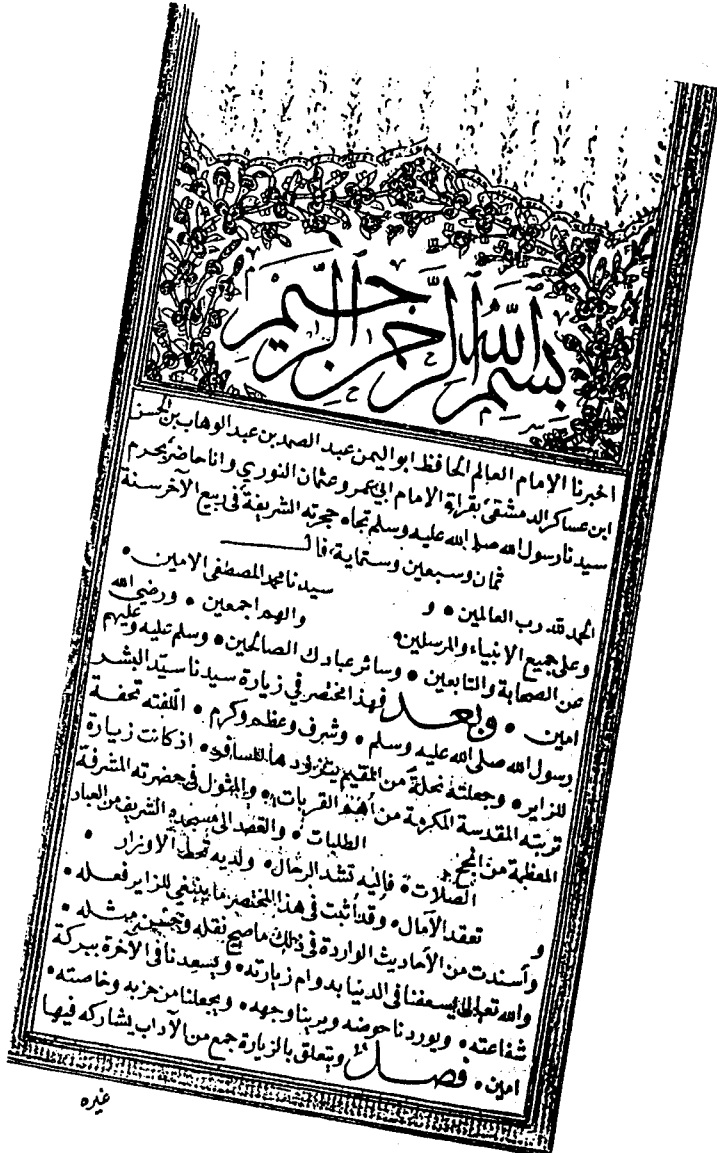 بسم الله الرحمن الرحيم
اخبرنا الإمام العالم الحافظ ابو اليمن عبد الصمد بن عبد الوهاب بن الحسن
ابن عساكر الدمشقي بقراة الإمام ابي عمر وعثمان النوري وانا حاضر بحرم
سيدنا رسول الله صلى الله عليه وسلم تجاه حجرته الشريفة في ربيع الآخر سنة
ثمان وسبعين وستماية، قال
الحمد لله رب العالمين • و سيدنا محمد المصطفى الامين •
وعلى جميع الانبياء والمرسلين • والهم اجمعين • ورضي الله
عن الصحابة والتابعين • وسائر عبادك الصالحين • وسلم عليه وعليهم
امين • وبعد فهذا مختصر في زيارة سيدنا سيد البشر
رسول الله صلى الله عليه وسلم • وشرف وعظم وكرم • اللفته تحفة
للزاير • وجعلته نحلة من المقيم يتزود ها المسافر • اذ كانت زيارة
تربته المقدسة المكرمة من اهم القربات • والمثول في حضرته المشرفة
المعظبة من الطلبات • والقصد الى مسجده الشريف من العباد
الصلات • فإليه تشد الرحال • ولديه تحط الاوزار •
و تعقد الآمال • وقد أثبت في هذا المختصر ما ينبغي للزاير فعله •
وأسندت من الأحاديث الواردة في ذلك ما صح نقله و مثله •
والله تعالى يسعفنا في الدنيا بدوام زيارته • ويسعدنا في الآخرة ببركة
شفاعته • ويوردنا حوضه ويرينا وجهه • ويجعلنا من حزبه وخاصته •
امين • فصل ويتعلق بالزيارة جمع من الآداب يشاركه فيها
غيره